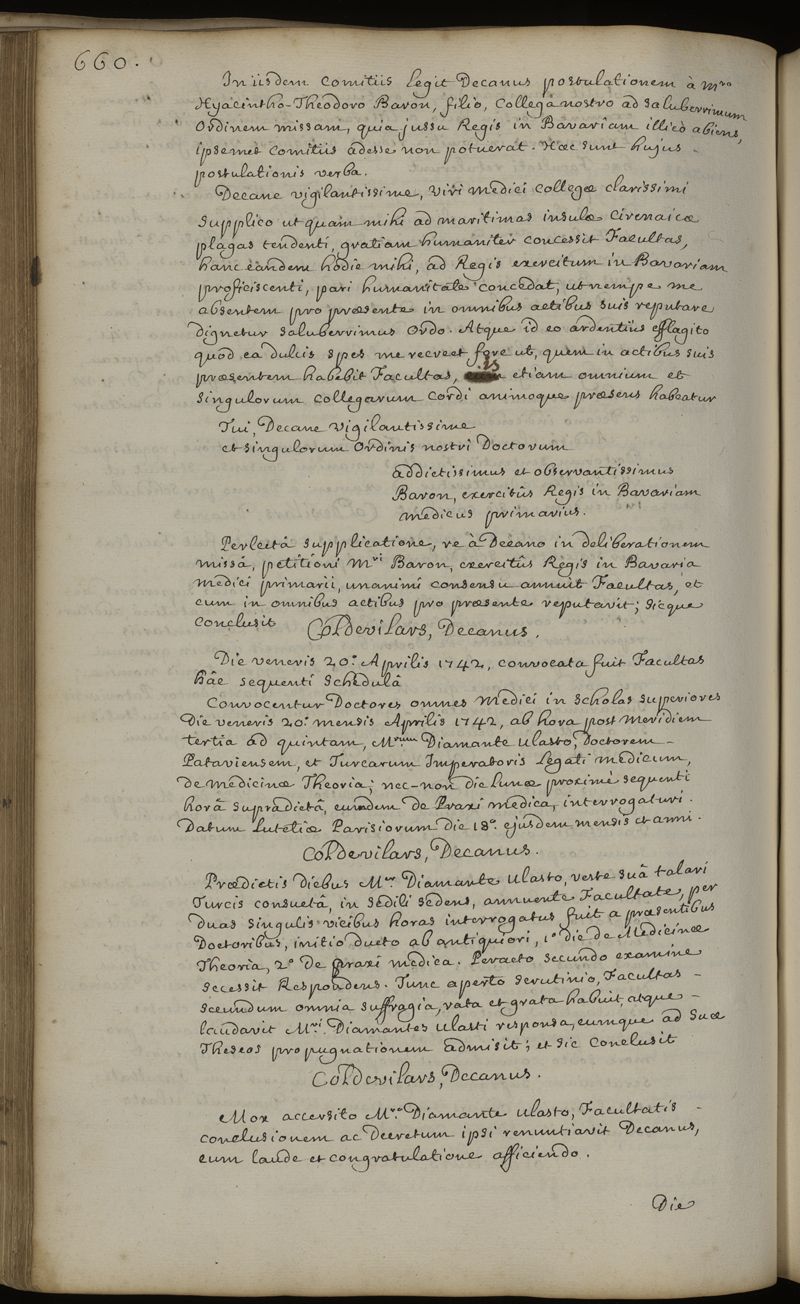 660.
In iisdem Comitiis Legit Decanus postulationem à Mro
Hyacintho-Theodoro Baron, filio, Collegâ nostro ad saluberrimum
Ordinem missam, quia jussu Regis in Bavariam illicò abiens,
ipsemet Comitiis adesse non potuerat. Hæc sunt hujus
postulationis verba.
Decane vigilantissime, Viri Medici Collegæ clarissimi
Supplico ut quam mihi ad maritimas insulæ Cirenaicæ
plagas tendenti, gratiam humaniter concessit Facultas,
hanc eandem hodie mihi, ad Regis exercitum in Bavariam
proficiscenti, pari humanitate concedat, ut nempe me
absentem pro præsente in omnibus actibus suis reputare
dignetur saluberrimus Ordo. Atque id eo ardentius efflagito
quod ea dulcis spes me recreet fore ut, quem in actibus suis
præsentem habebit Facultas, is etiam omnium et
singulorum Collegarum Cordi animoque præsens habeatur
Tui, Decane Vigilantissime
et singulorum Ordinis nostri Doctorum
addictissimus et observantissimus
Baron, exercitûs Regis in Bavariam
medicus primarius.
Perlectâ supplicatione, re à Decano in deliberationem
missâ, petitioni Mri Baron, exercitûs Regis in Bavaria
Medici primarii, unanimi consensu annuit Facultas, et
eum in omnibus actibus pro præsente reputavit; sicque
Conclusit
Coldevilars, Decanus.
Die veneris 20a. Aprilis 1742, convocata fuit Facultas
hâc sequenti Schedulâ
Convocentur Doctores omnes Medici in Scholas Superiores
Die veneris 20a. mensis Aprilis 1742, ab hora post Meridiem
tertia ad quintam, Mrum Diamante Ulasto, Doctorem
Pataviensem, et Turcarum Imperatoris Legati Medicum,
de Medicinæ Theoria; nec-non die Lunæ proximè sequenti
horâ supradictâ, eumdem de Praxi medica, interrogaturi.
Datum Lutetiæ Parisiorum die 18a. ejusdem mensis et anni.
Coldevilars, Decanus.
Prædictis diebus Mer Diamante Ulasto, veste suâ talari
Turcis consuetâ, in sedili sedens, annuente Facultate, per
duas singulis vicibus horas interrogatus fuit a præsentibus
Doctoribus, initio ducto ab antiquiori, 1o die de Medicinæ
Theoria, 2o de praxi medica. Peracto secundo examine
secessit Respondens. Tunc aperto scrutinio, Facultas
secundum omnia suffragia, rata et grata habuit, atque
laudavit Mri. Diamantes Ulasti responsa, eumque ad suæ
Theseos propugnationem admisit; et sic Conclusit
Coldevilars, Decanus.
Mox accersito Mro Diamante Ulasto, Facultatis
conclusionem ac Decretum ipsi renuntiavit Decanus,
eum laude et congratulatione afficiendo.
Die